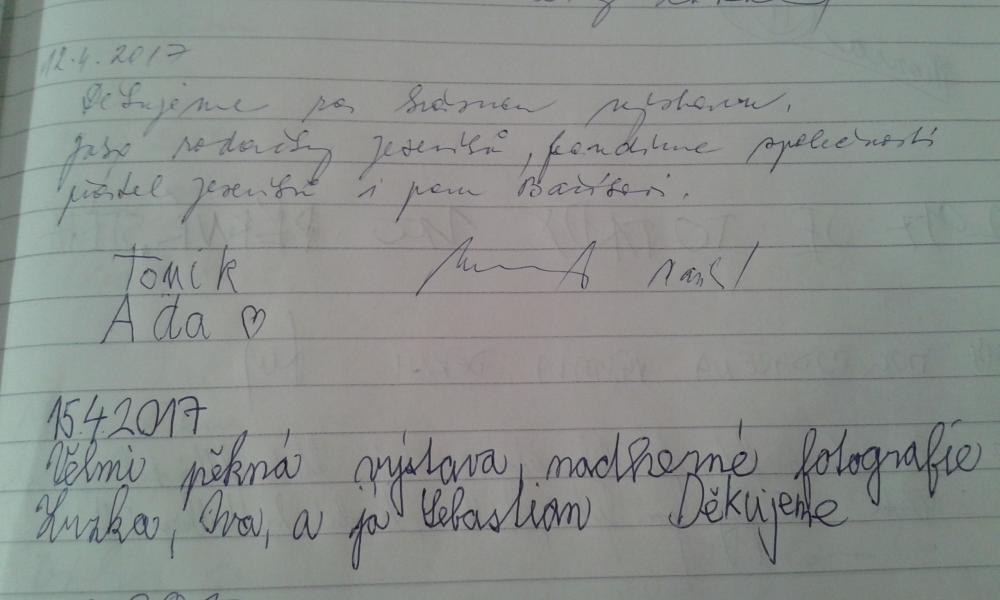 12.4.2017
Děkujeme za krásnou výstavu.
jako rodačky jeseníků, fandíme společnosti
přátel jeseníků i panu
Toník
Áďa ♡
15.4.2017
Velmi pěkná výstava, nadherné fotografie
Zuzka, Iva, a já Sebastian Děkujeme